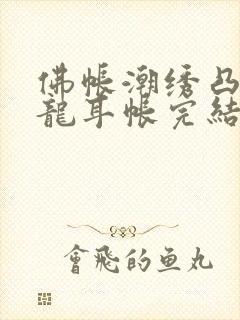 佛帐潮绣凸
龍耳帐完結
會飛的鱼丸